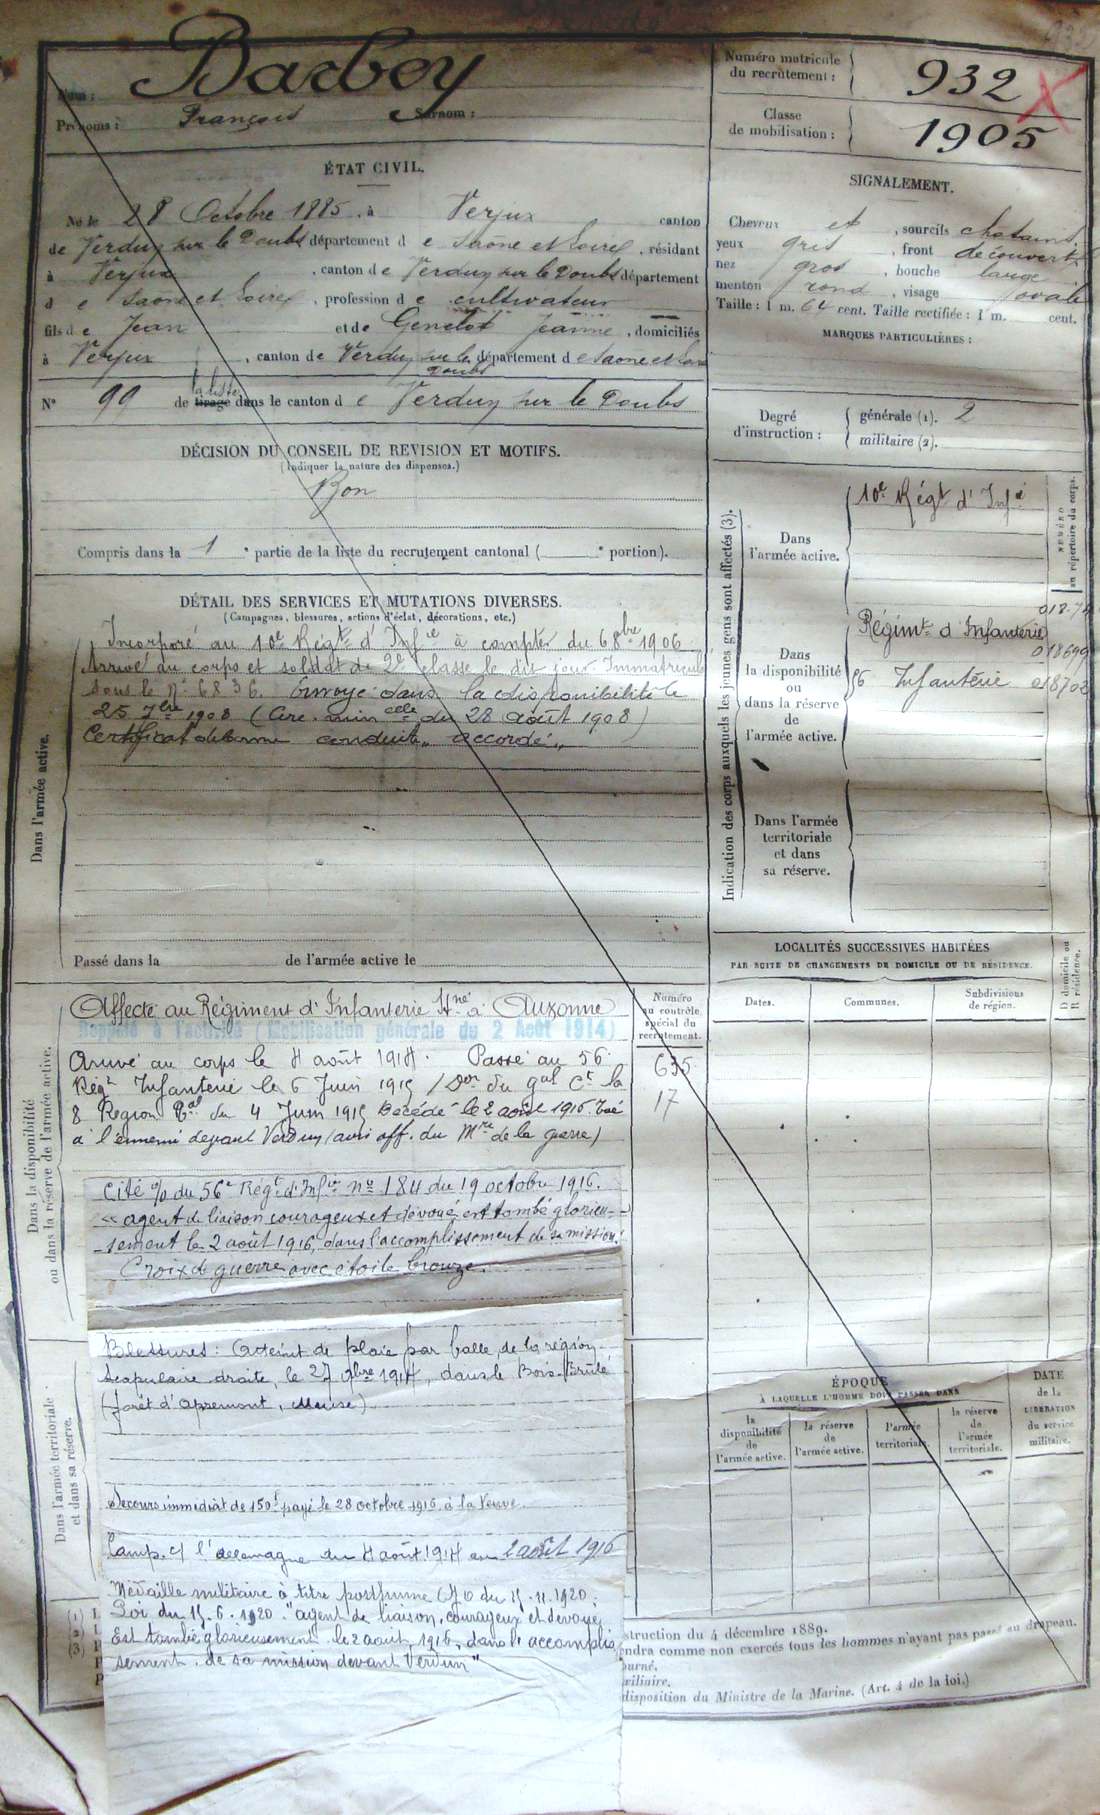 Nom : Barbey
Prénoms : François Surnom :
Numéro matricule du recrutement : 932
Classe de mobilisation : 1905
ÉTAT CIVIL.
Né le 28 Octobre 1885, à Verjux canton
de Verdun sur le Doubs département d e Saône et Loire, résidant
à Verjux, canton d e Verdun sur le Doubs département
d e Saône et Loire, profession d e cultivateur
fils d e Jean et de Genelot Jeanne, domiciliés
à Verjux, canton de Verdun sur le Doubs département d e Saône et Loire
N° 99 de tirage la liste dans le canton d e Verdun sur le Doubs
SIGNALEMENT.
Cheveux et, sourcils chatains.
yeux gris, front découvert
nez gros, bouche large
menton rond, visage ovale
Taille : 1 m. 64 cent. Taille rectifiée : 1 m. cent.
MARQUES PARTICULIÈRES :
Degré d'instruction : générale (1). 2
militaire (2).
DÉCISION DU CONSEIL DE REVISION ET MOTIFS.
(Indiquer la nature des dispenses.)
Bon
Compris dans la 1e partie de la liste du recrutement cantonal ( e portion).
DÉTAIL DES SERVICES ET MUTATIONS DIVERSES.
(Campagnes, blessures, actions d'éclat, décorations, etc.)
Dans l'armée active.
Incorporé au 10e Régt d'Infie à compter du 6 8bre 1906
Arrivé au corps et soldat de 2e classe le dit jour. Immatriculé
sous le n° 6836. Envoyé dans la disponibilité le
25 7bre 1908 (Circ. minielle du 28 août 1908)
Certificat de bonne conduite " accordé "
Passé dans la de l'armée active le
Indication des corps auxquels les jeunes gens sont affectés (3).
NUMÉRO au répertoire du corps.
Dans l'armée active.
10e Régt d'Infie
Dans la disponibilité ou dans la réserve de l'armée active.
Régimt d'Infanterie
018699
56 Infanterie 018702
Dans l'armée territoriale et dans sa réserve.
LOCALITÉS SUCCESSIVES HABITÉES
PAR SUITE DE CHANGEMENTS DE DOMICILE OU DE RÉSIDENCE.
Dates. Communes. Subdivisions de région. D domicile ou R résidence.
Dans la disponibilité ou dans la réserve de l'armée active.
Numéro au contrôle spécial du recrutement.
635
17
Affecté au Régiment d'Infanterie St né à Auxonne
Rappelé à l'activité (Mobilisation générale du 2 Août 1914)
Arrivé au corps le 4 août 1914. Passé au 56
Régt Infanterie le 6 Juin 1915 (Don du gal Ct la
8 Région du 4 Juin 1915 Décédé le 2 août 1916. Tué
à l'ennemi devant Verdun (avis off. du Mre de la guerre)
Cité % du 56e Régt d'Infie No 184 du 19 octobre 1916.
« agent de liaison courageux et dévoué est tombé glorieu-
-sement le 2 août 1916, dans l'accomplissement de sa mission.
Croix de guerre avec étoile bronze.
Blessures : Atteint de plaie par balle, de la région
scapulaire droite, le 27 9bre 1914, dans le Bois-Brûlé
(forêt d'Apremont, Meuse)
Dans l'armée territoriale et dans sa réserve.
Secours immédiat de 150f payé le 28 octobre 1916 à la Veuve
Camp. c/ l'allemagne du 4 août 1914 au 2 août 1916
Médaille militaire à titre posthume
Loi du 15.6.1920. "agent de liaison, courageux et dévoué,
Est tombé glorieusement le 2 août 1916, dans l'accomplis
sement de sa mission devant Verdun"
ÉPOQUE
À LAQUELLE L'HOMME DOIT PASSER DANS
la disponibilité de l'armée active.
la réserve de l'armée active.
l'armée territoriale.
la réserve de l'armée territoriale.
DATE de la LIBÉRATION du service militaire.
(1)
(2)
(3)
struction du 4 décembre 1889.
endra comme non exercés tous les hommes n'ayant pas passé au drapeau.
ourné.
xiliaire.
disposition du Ministre de la Marine. (Art. 4 de la loi.)